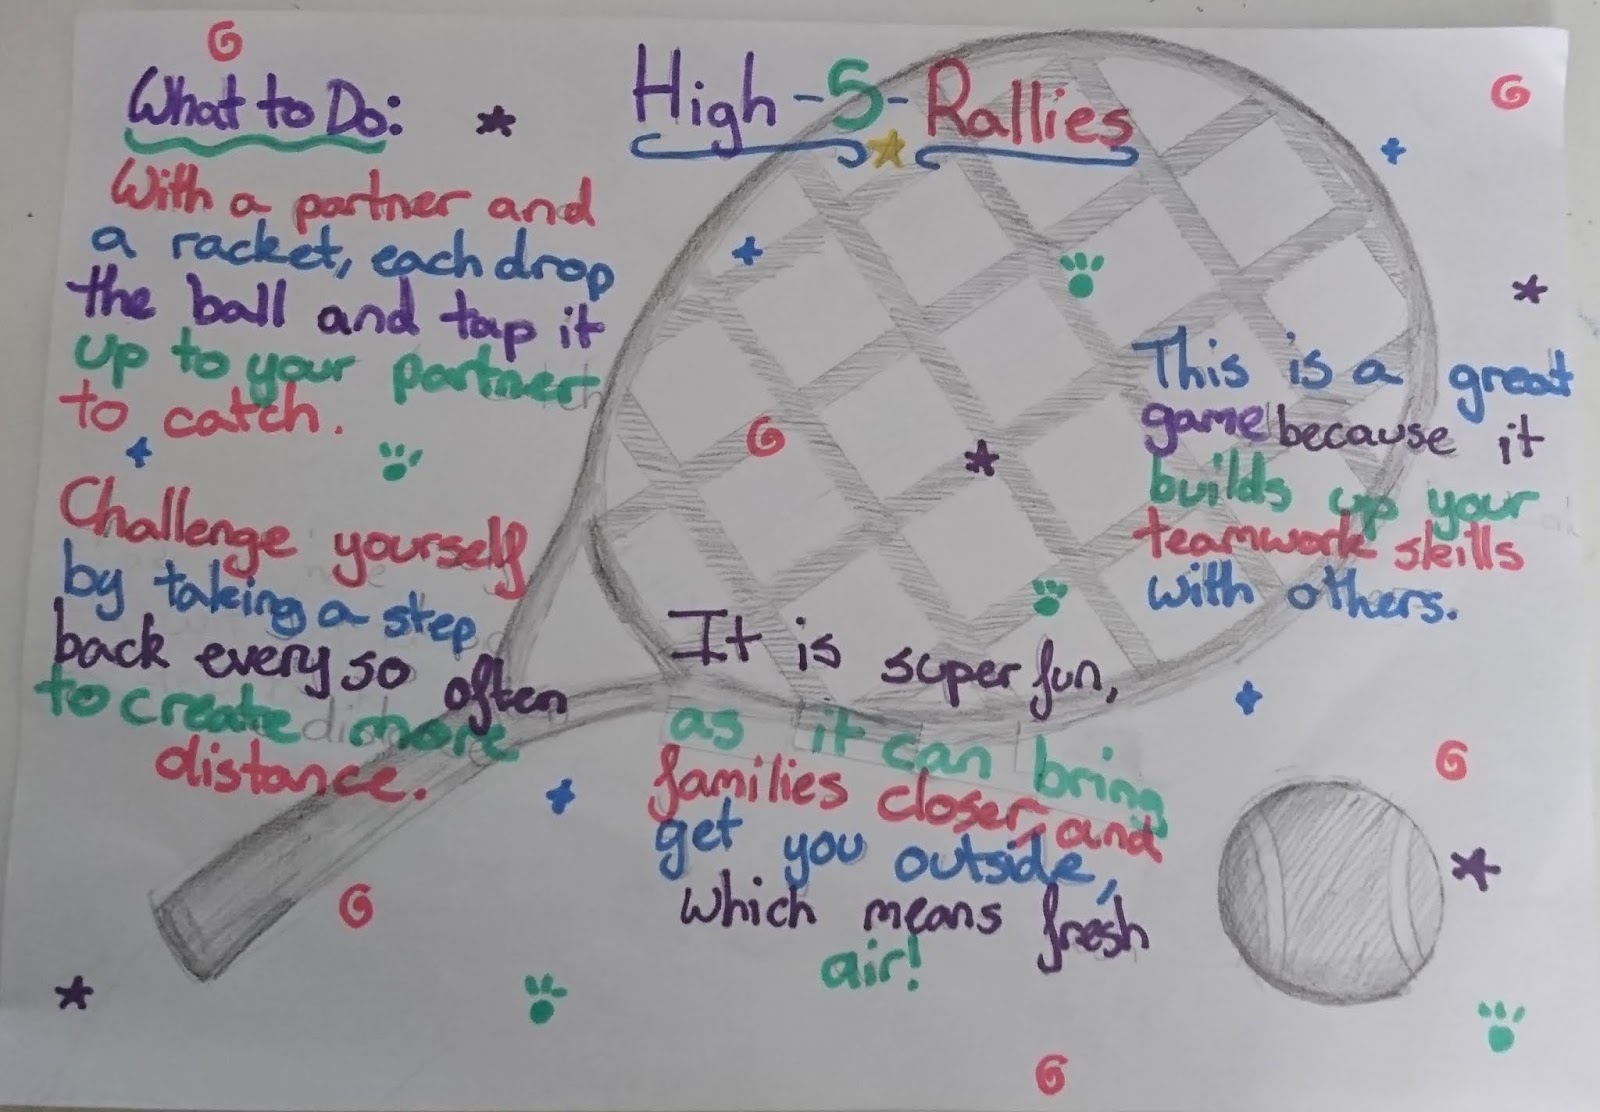 High-5-Rallies
What to Do:
With a partner and
a racket, each drop
the ball and tap it
up to your partner
to catch.
Challenge yourself
by taking a step
back every so often
to create more
distance.
This is a great
game because it
builds up your
teamwork skills
with others.
It is super fun,
as it can bring
families closer, and
get you outside,
which means fresh
air!